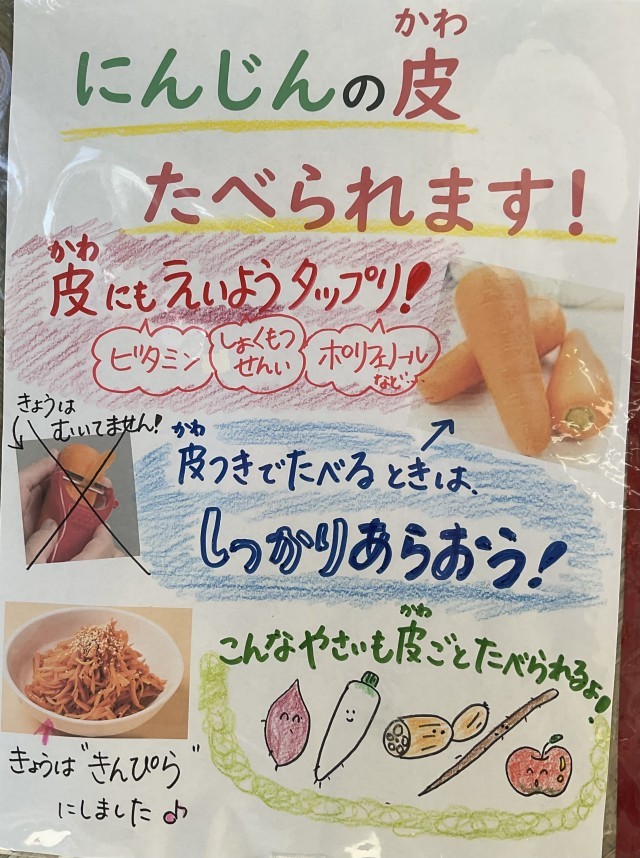 かわ
にんじんの皮
たべられます!
かわ
皮にもえいようタップリ!
ビタミン
しょくもつ
せんい
ポリフェノール
など…
きょうは
むいてません!
かわ
皮つきでたべるときは、
しっかりあらおう!
かわ
こんなやさいも皮ごとたべられるよ!
きょうは"きんぴら"
にしました♪